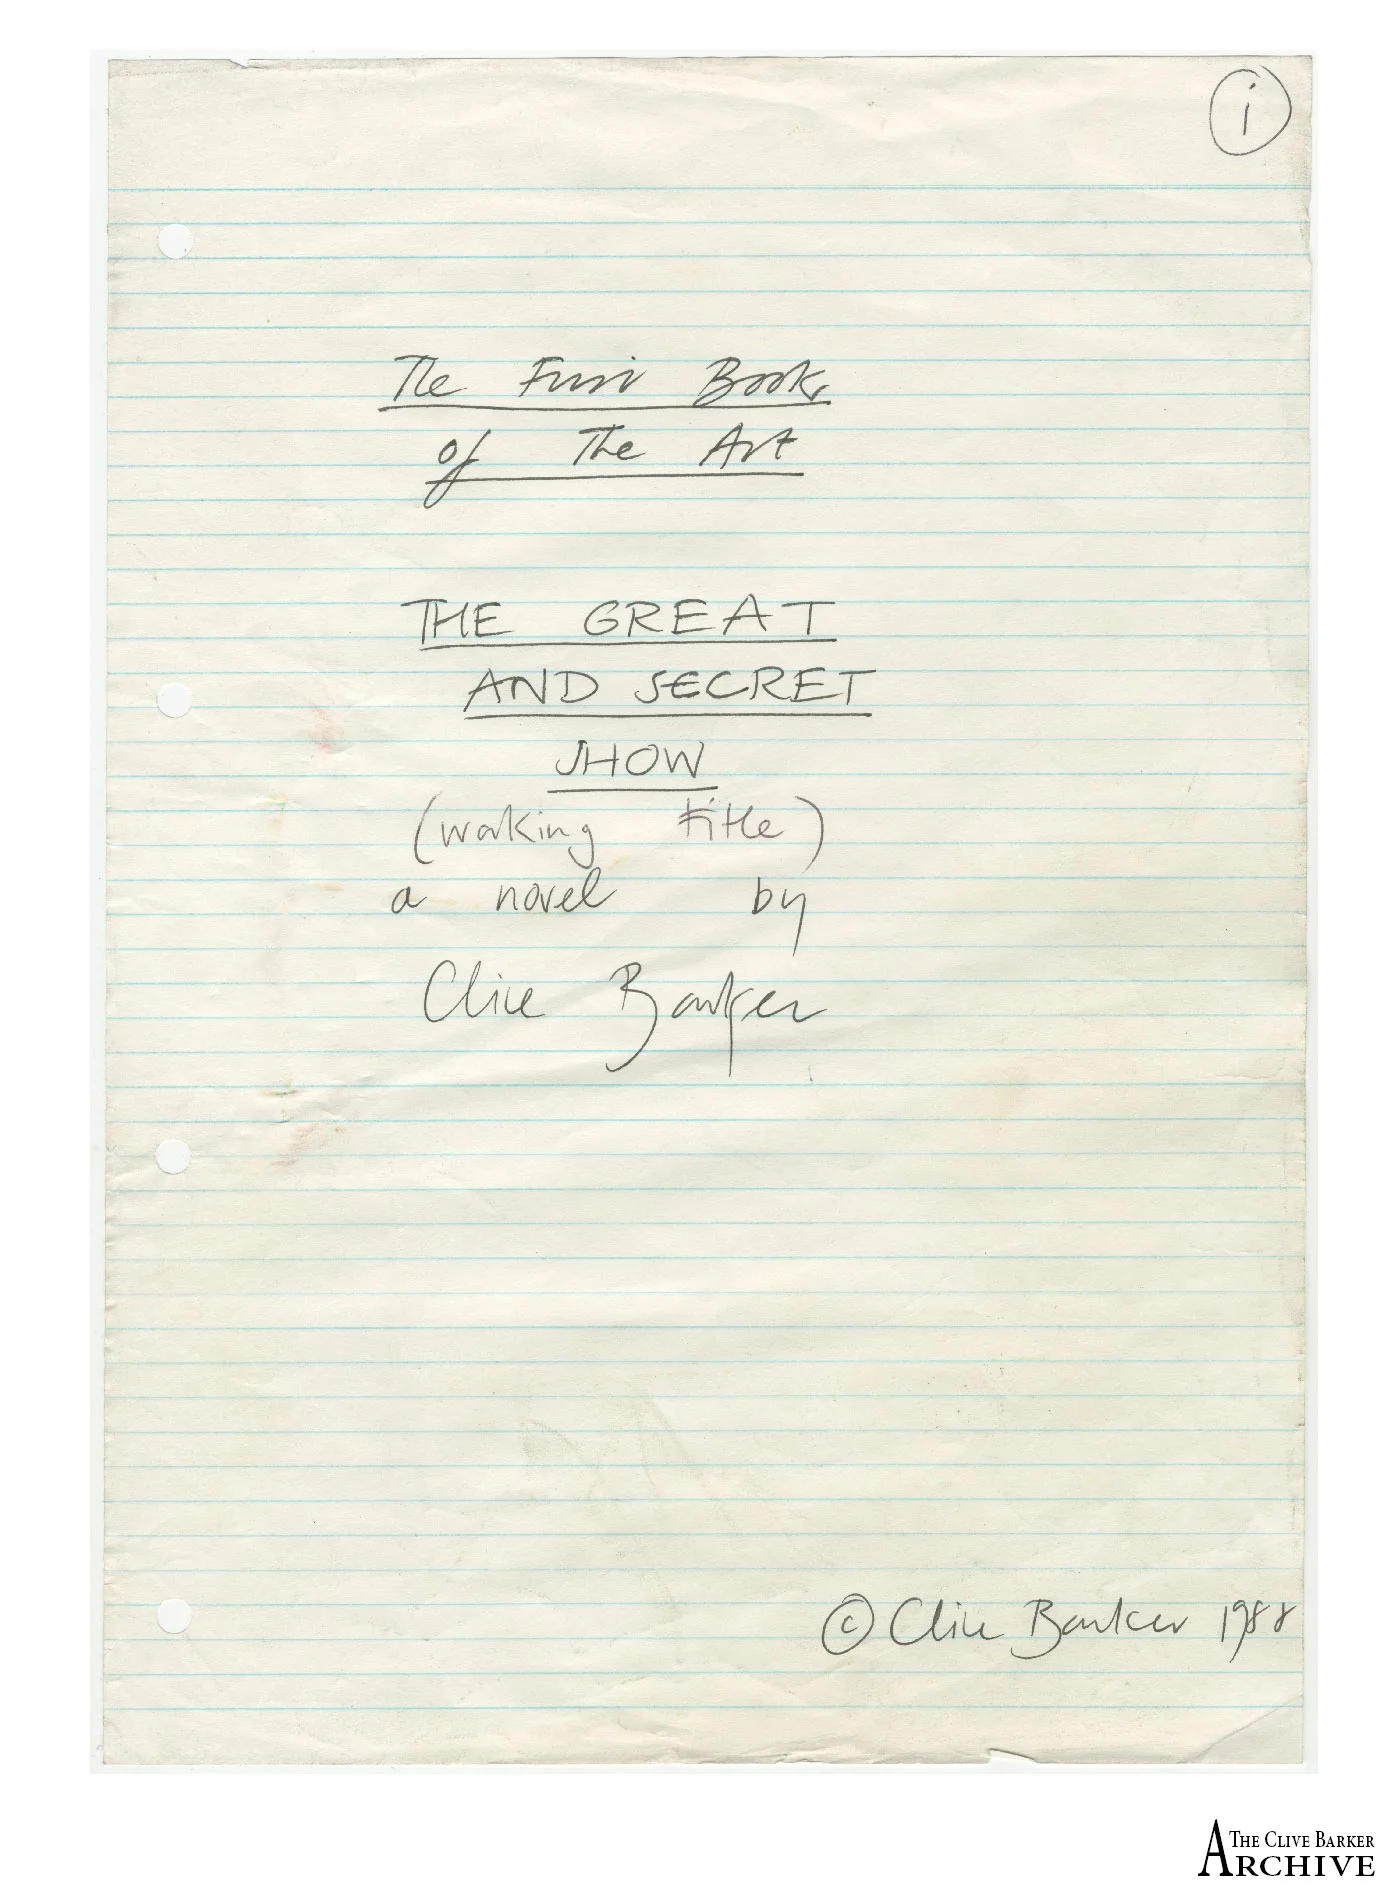 i
The First Book
of The Art
THE GREAT
AND SECRET
SHOW
(working title)
a novel by
Clive Barker
© Clive Barker 1988
THE CLIVE BARKER
ARCHIVE